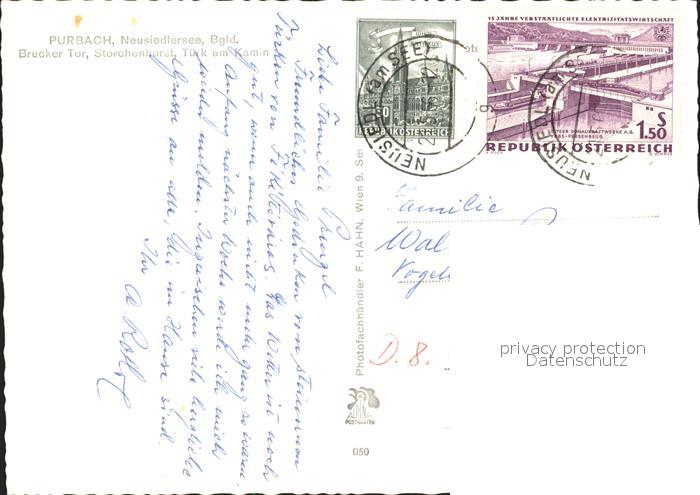 PURBACH, Neusiedlersee, Bgld.
Brucker Tor, Storchenhorst, Türk am Kamin
15 JAHRE VERSTAATLICHTE ELEKTRIZITÄTSWIRTSCHAFT
S
1.50
REPUBLIK ÖSTERREICH
REPUBLIK ÖSTERREICH
NEUSIEDL am SEE
NEUSIEDL am
Photofachhändler F. HAHN, Wien 9, Se
Liebe Familie
Freundliches Gedenken vom
Türken von Das Wetter ist noch
gut, wenn auch nicht mehr ganz so warm.
Anfang nächster Woche werde ich mich
wieder melden. Inzwischen viele herzliche
Grüsse an alle, die im Hause sind.
Ihr
Familie
Wal
Vogel
D. 8.
POSTKARTEN
050
privacy protection
Datenschutz